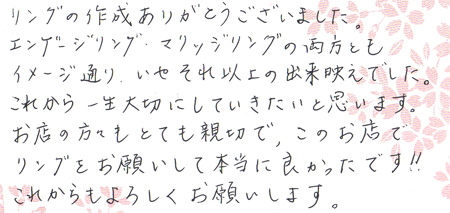 リングの作成ありがとうございました。
エンゲージリング・マリッジリングの両方とも
イメージ通り、いやそれ以上の出来映えでした。
これから一生大切にしていきたいと思います。
お店の方々もとても親切で、このお店で
リングをお願いして本当に良かったです!!
これからもよろしくお願いします。